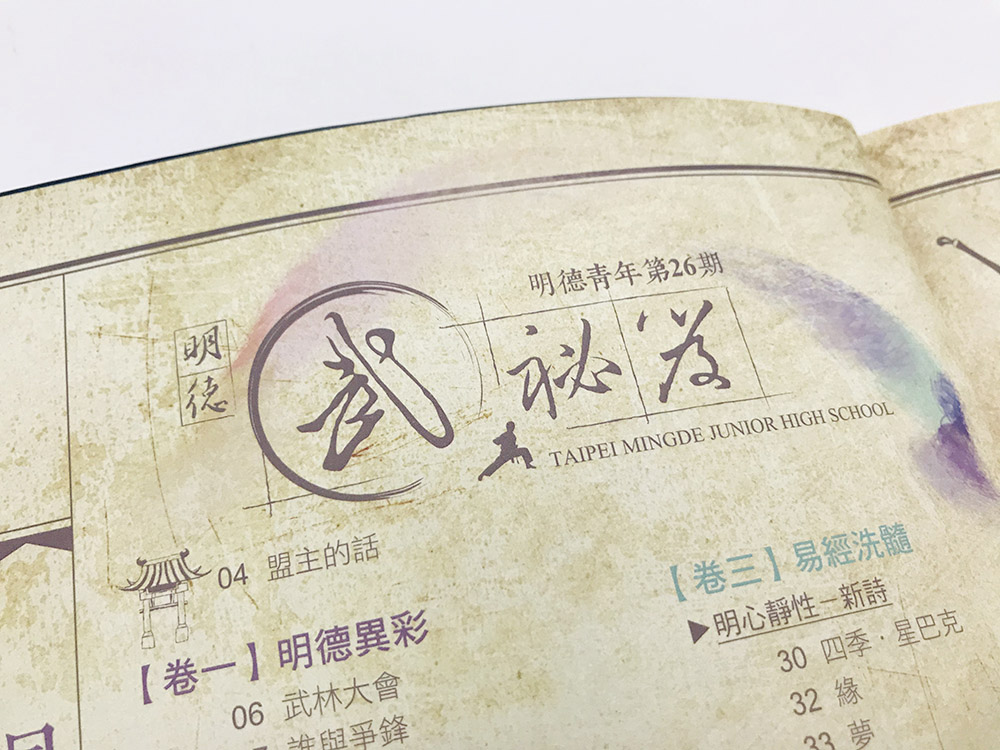 明德青年第26期
明德
武祕笈
TAIPEI MINGDE JUNIOR HIGH SCHOOL
04 盟主的話
【卷一】明德異彩
06 武林大會
誰與爭鋒
【卷三】易經洗髓
▶明心靜性－新詩
30 四季．星巴克
32 緣
33 夢